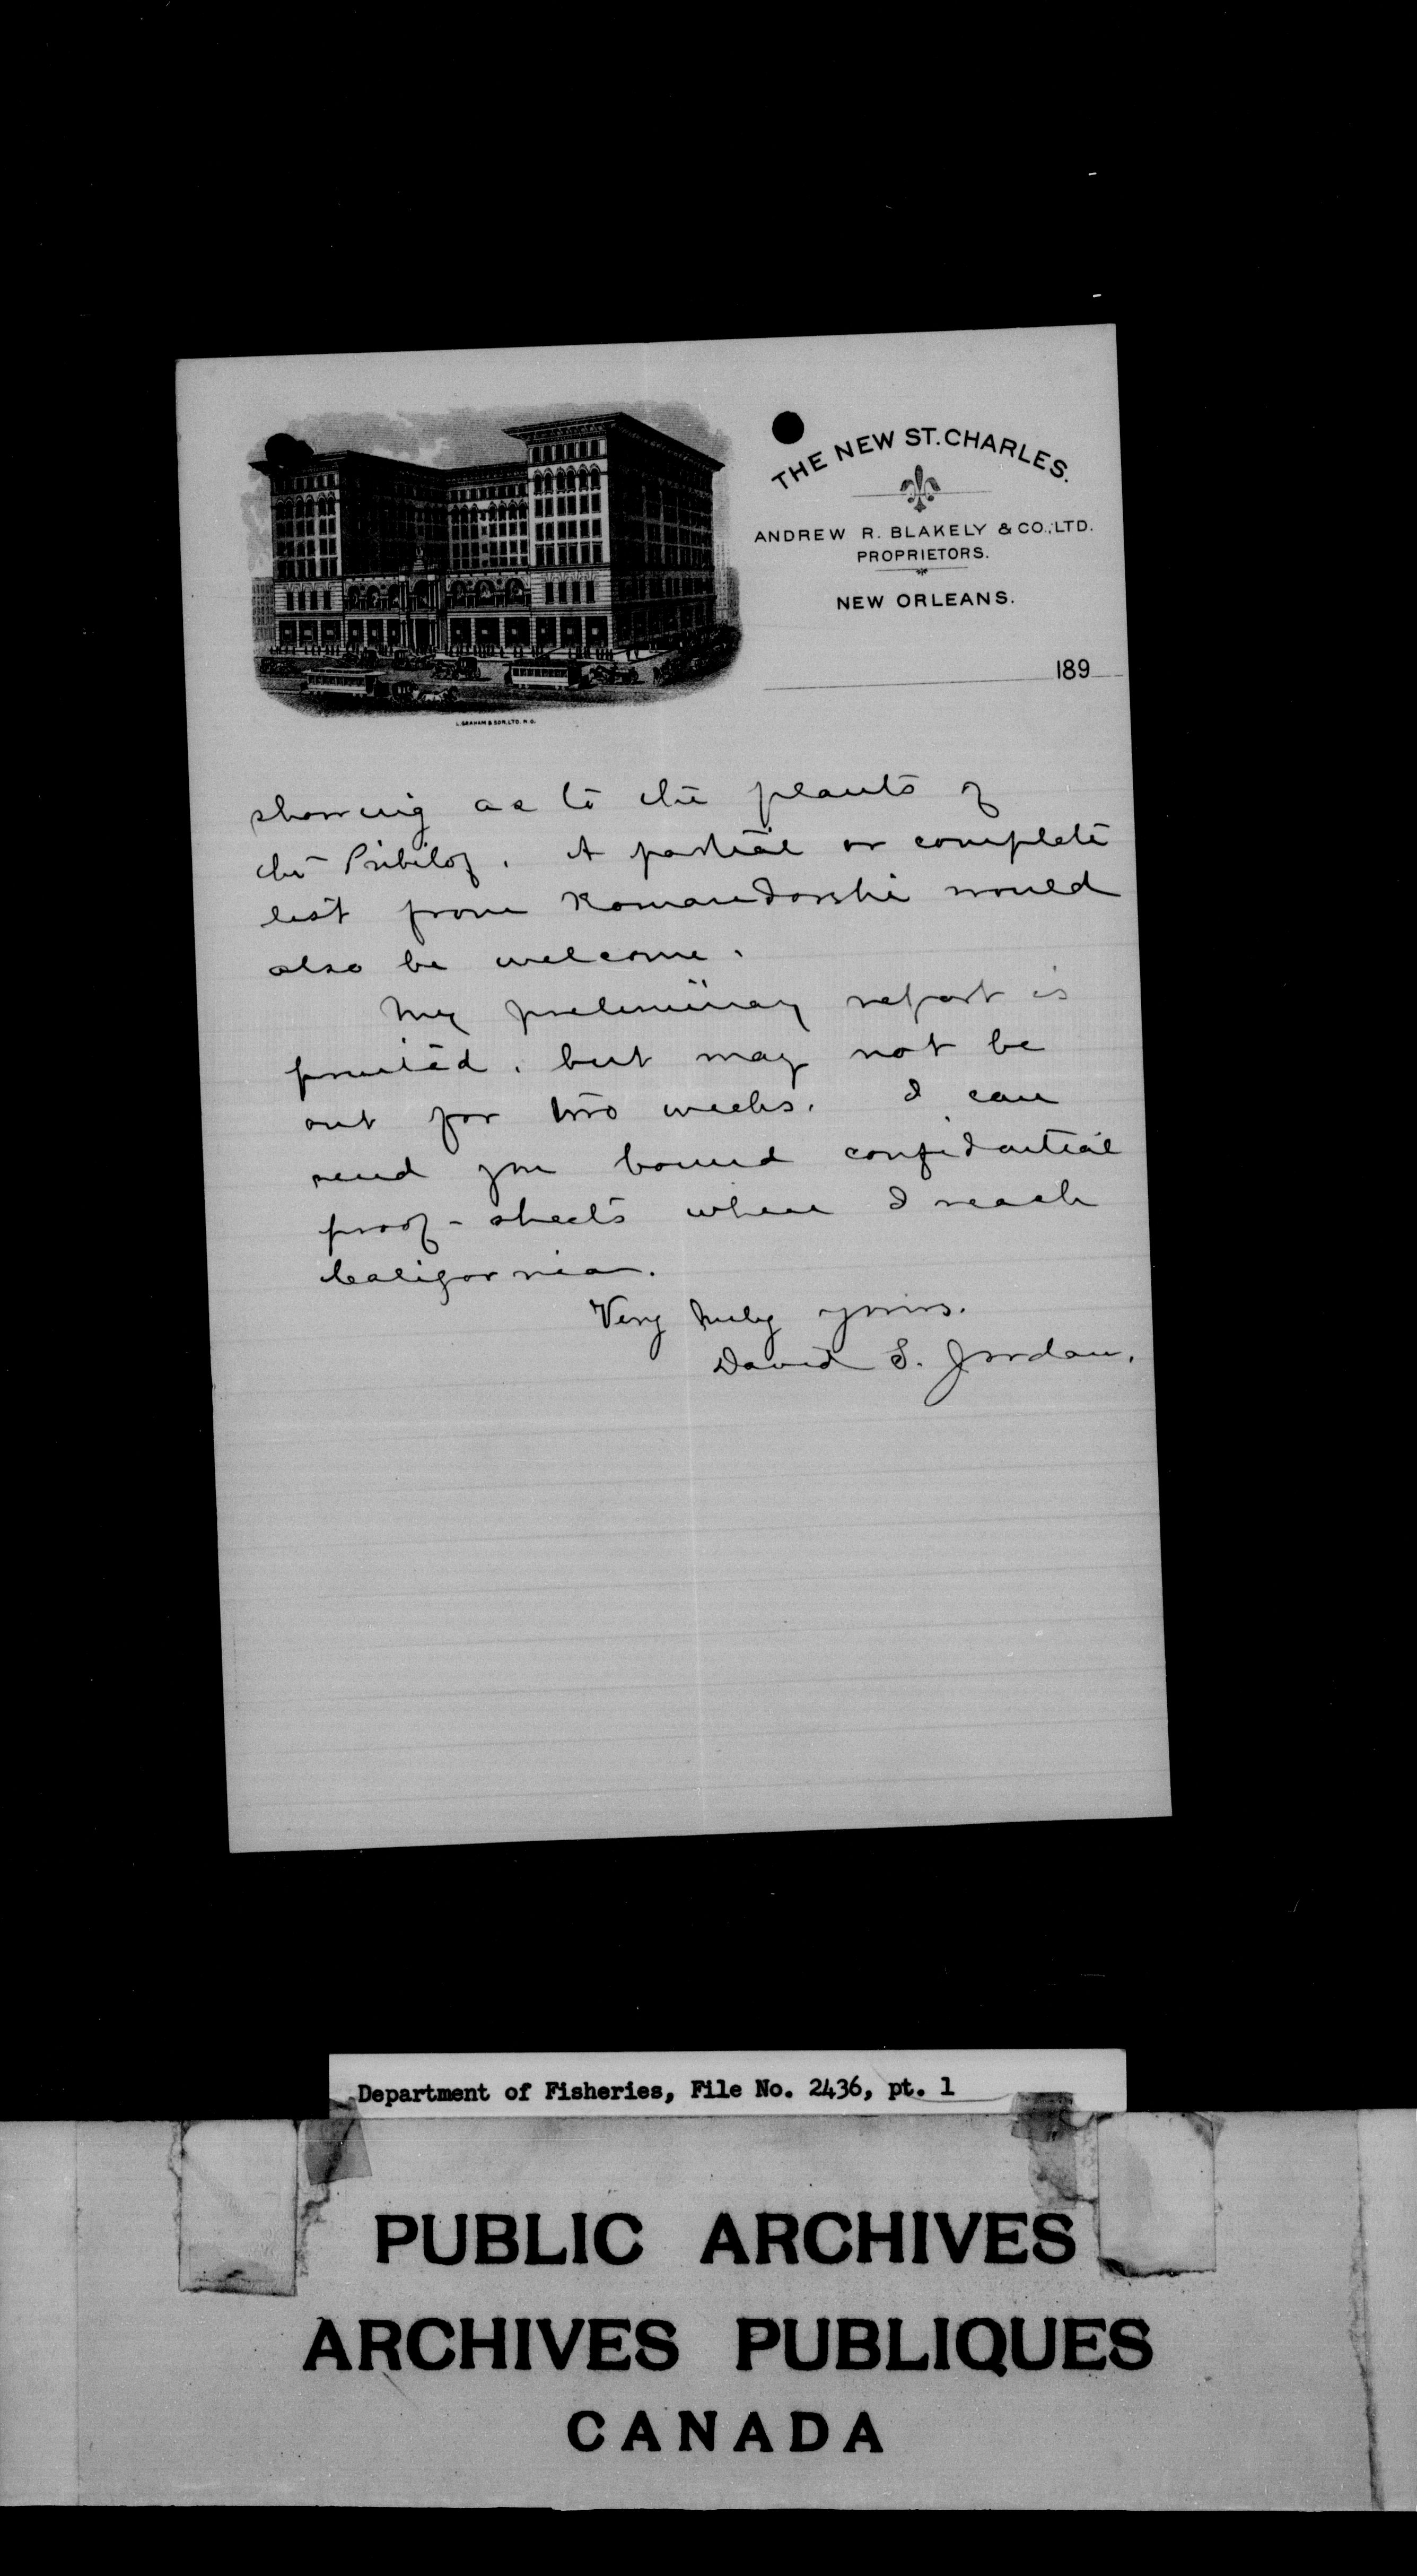 THE NEW ST. CHARLES.
ANDREW R. BLAKELY & CO., LTD.
PROPRIETORS.
NEW ORLEANS.
189
L. GRAHAM & SON, LTD. N.O.
showing as to the plants of
the Pribilof. A partial or complete
list from Komandorski would
also be welcome.
My preliminary report is
printed, but may not be
out for two weeks. I can
send you bound confidential
proof-sheets when I reach
California.
Very truly yours.
David S. Jordan.
Department of Fisheries, File No. 2436, pt. 1
PUBLIC ARCHIVES
ARCHIVES PUBLIQUES
CANADA